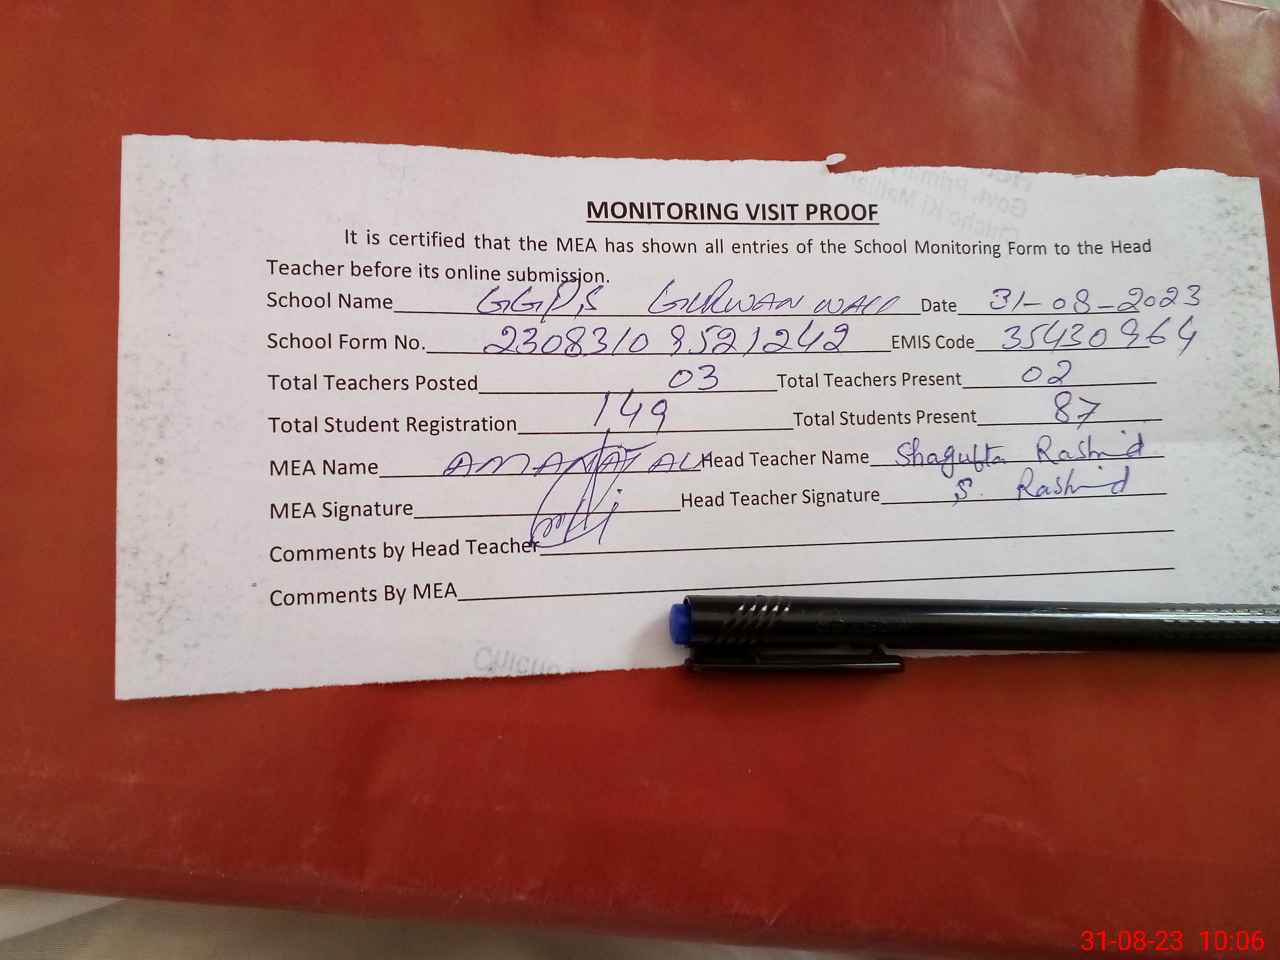 MONITORING VISIT PROOF
It is certified that the MEA has shown all entries of the School Monitoring Form to the Head
Teacher before its online submission.
School Name GGPS GURWAN WALI Date 31-08-2023
School Form No. 23083109521242 EMIS Code 35430964
Total Teachers Posted 03 Total Teachers Present 02
Total Student Registration 149 Total Students Present 87
MEA Name AMANAT ALI Head Teacher Name Shagufta Rashid
MEA Signature Head Teacher Signature S. Rashid
Comments by Head Teacher
Comments By MEA
31-08-23 10:06